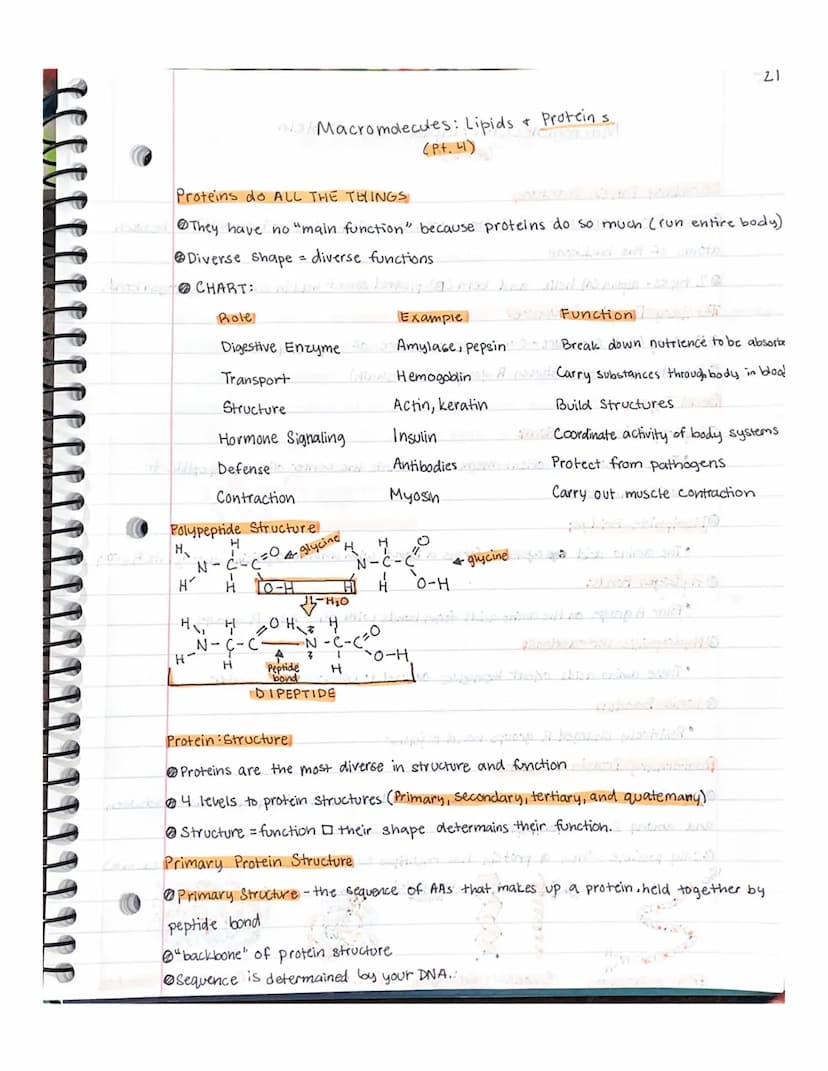 21
Macromolecules: Lipids + Proteins
(Pt. 4)
Proteins do ALL THE THINGS
They have no "main function" because proteins do so much (run entire body)
Diverse shape = diverse functions
CHART:
Role Example Function
Digestive Enzyme Amylase, pepsin Break down nutrience to be absorbe
Transport Hemogoblin Carry substances through body in blood
Structure Actin, keratin Build structures
Hormone Signaling Insulin Coordinate activity of body systems
Defense Antibodies Protect from pathogens
Contraction Myosin Carry out muscle contraction
Polypeptide Structure
H H O glycine H H O
N-C-C N-C-C glycine
H H O-H H H O-H
-H₂O
H H O H H O
N-C-C N-C-C
H H Peptide bond H O-H
DIPEPTIDE
Protein: Structure
Proteins are the most diverse in structure and function
4 levels to protein structures (Primary, secondary, tertiary, and quatemany)
Structure = function □ their shape determains their function.
Primary Protein Structure
Primary Structure - the sequence of AAs that makes up a protein. held together by
peptide bond
"backbone" of protein structure
Sequence is determained by your DNA.